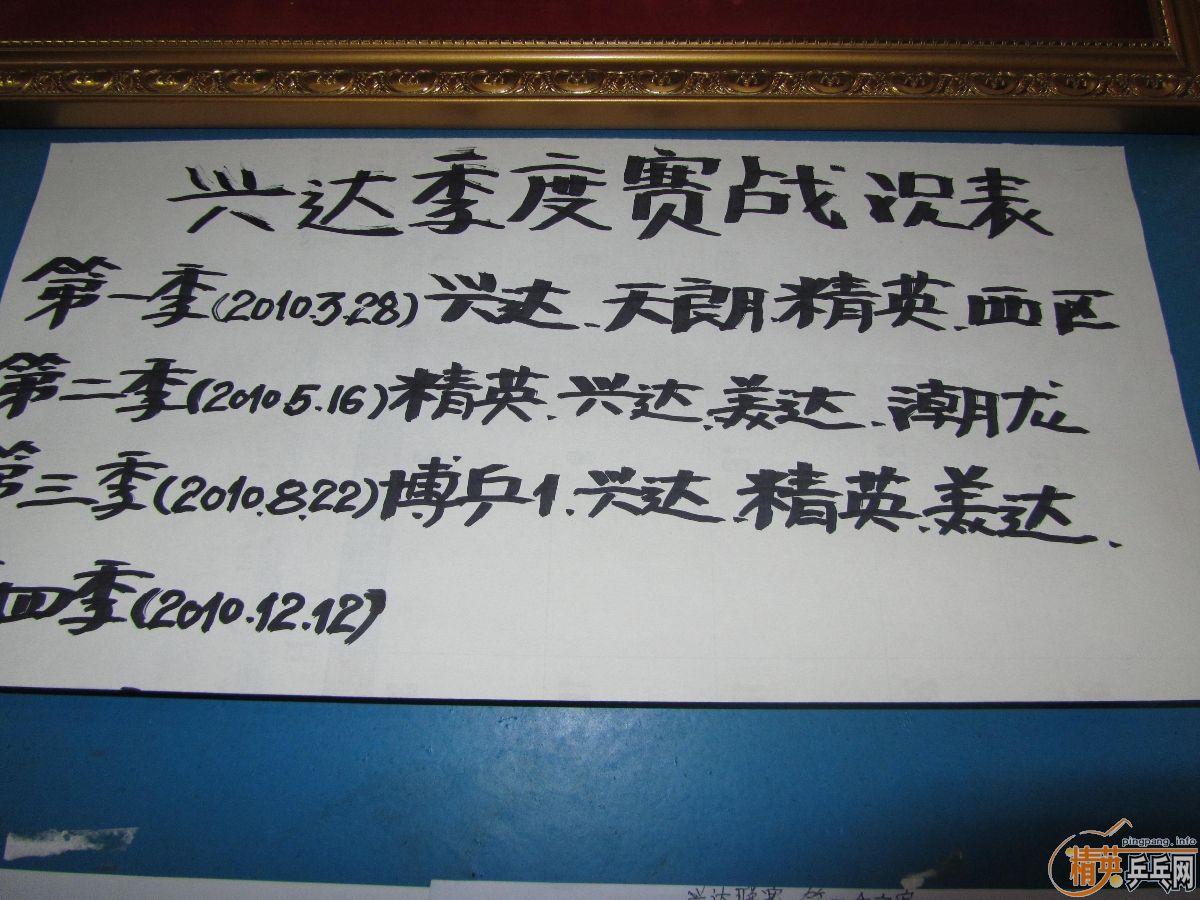 兴达季度赛战况表
第一季(2010.3.28)兴达、天朗、精英、西区
第二季(2010.5.16)精英、兴达、美达、潮龙
第三季(2010.8.22)博乒1、兴达、精英、美达、
四季(2010.12.12)
pingpang.info
精英乒乓网
兴达联赛